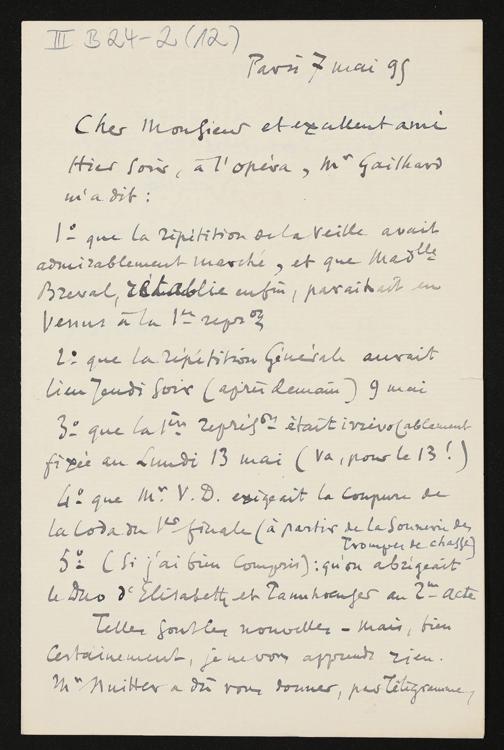 III B 24-2 (12)
Paris 7 mai 95
Cher Monsieur et excellent ami
Hier soir, à l'opéra, Mr Gailhard
m'a dit :
1º que la répétition de la veille avait
admirablement marché, et que Madlle
Bréval, rétablie enfin, paraitrait en
Venus à la 1ère représon
2º que la répétition Générale aurait
lieu Jeudi soir (après demain) 9 mai
3º que la 1ère représon était irrévocablement
fixée au Lundi 13 mai (Va, pour le 13 !)
4º que Mr V. D. exigeait la coupure de
la Coda du 1er finale (à partir de la Sonnerie des
Trompes de chasse)
5º (Si j'ai bien compris) : qu'on abrégeait
le Duo d'Elisabeth et Tannhoeuser au 2me acte
Telles sont les nouvelles - mais, bien
certainement, je ne vous apprends rien.
Mr Nuitter a dû vous donner, par Télégramme,